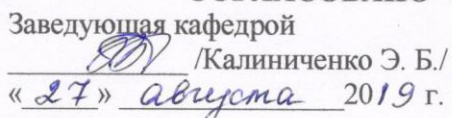 Заведующая кафедрой
/Калиниченко Э. Б./
« 27 » августа 2019 г.